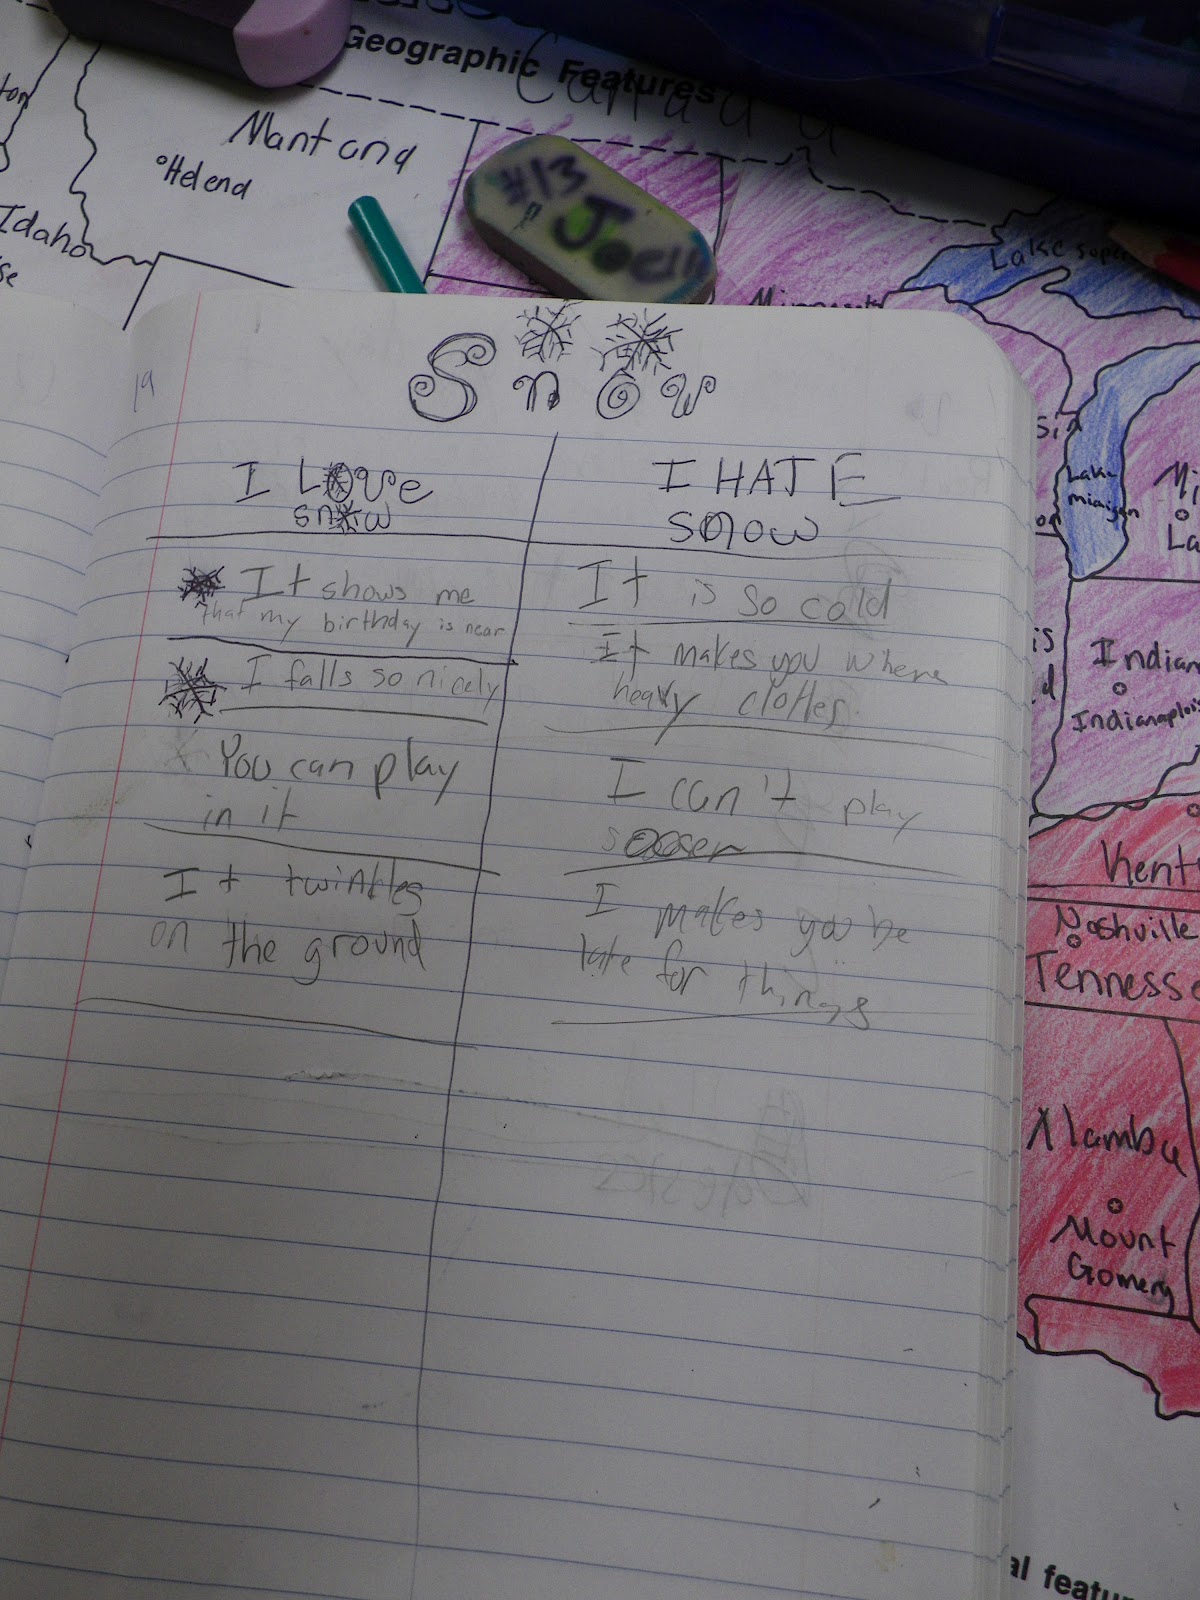 Geographic Features
Canada
Mantana
Helena
Idaho
#13
Lake super
Minnesota
Snow
19
I LOVE
snow
I HATE
snow
It shows me
that my birthday is near
It is so cold
I falls so nicely
It makes you where
heavy clothes.
You can play
in it
I can't play
soccer
It twinkles
on the ground
I makes you be
late for things
sin
Lake
miaigan
Mi
La
is
d
Indian
Indianaplois
Kent
Nashville
Tennesse
Alamba
Mount
Gomery
al featur